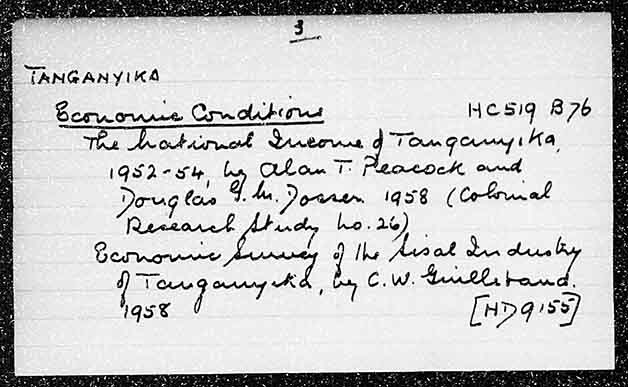 3
TANGANYIKA
Economic Conditions HC519 B76
The National Income of Tanganyika,
1952-54, by Alan T. Peacock and
Douglas G. M. Dosser. 1958 (Colonial
Research Study no. 26)
Economic survey of the Sisal Industry
of Tanganyika, by C. W. Guillebaud.
1958 [HD9155]